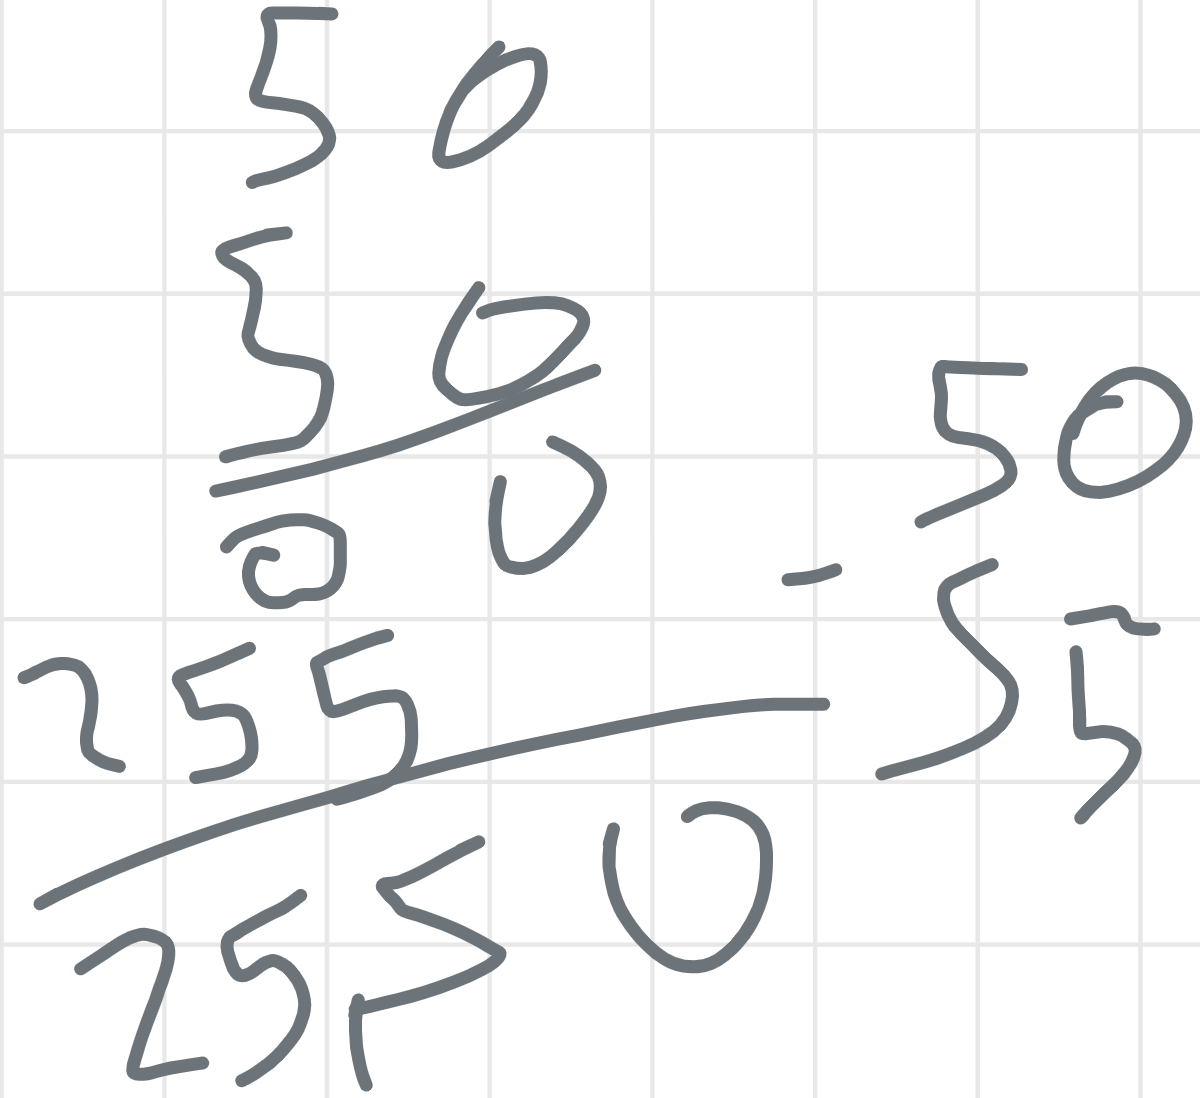 50
50
00
255
2550
50
- 55